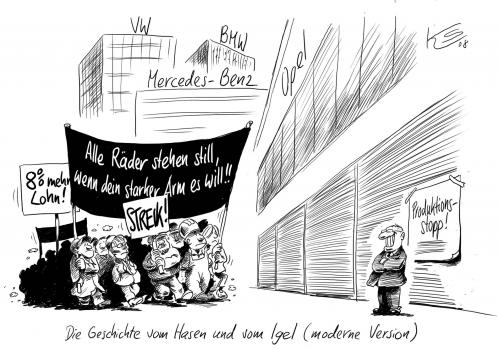 VW
BMW
Mercedes-Benz
Opel
KS 08
Alle Räder stehen still,
wenn dein starker Arm es will!!
8% mehr
Lohn!
STREIK!
Produktions-
stopp!
Die Geschichte vom Hasen und vom Igel (moderne Version)